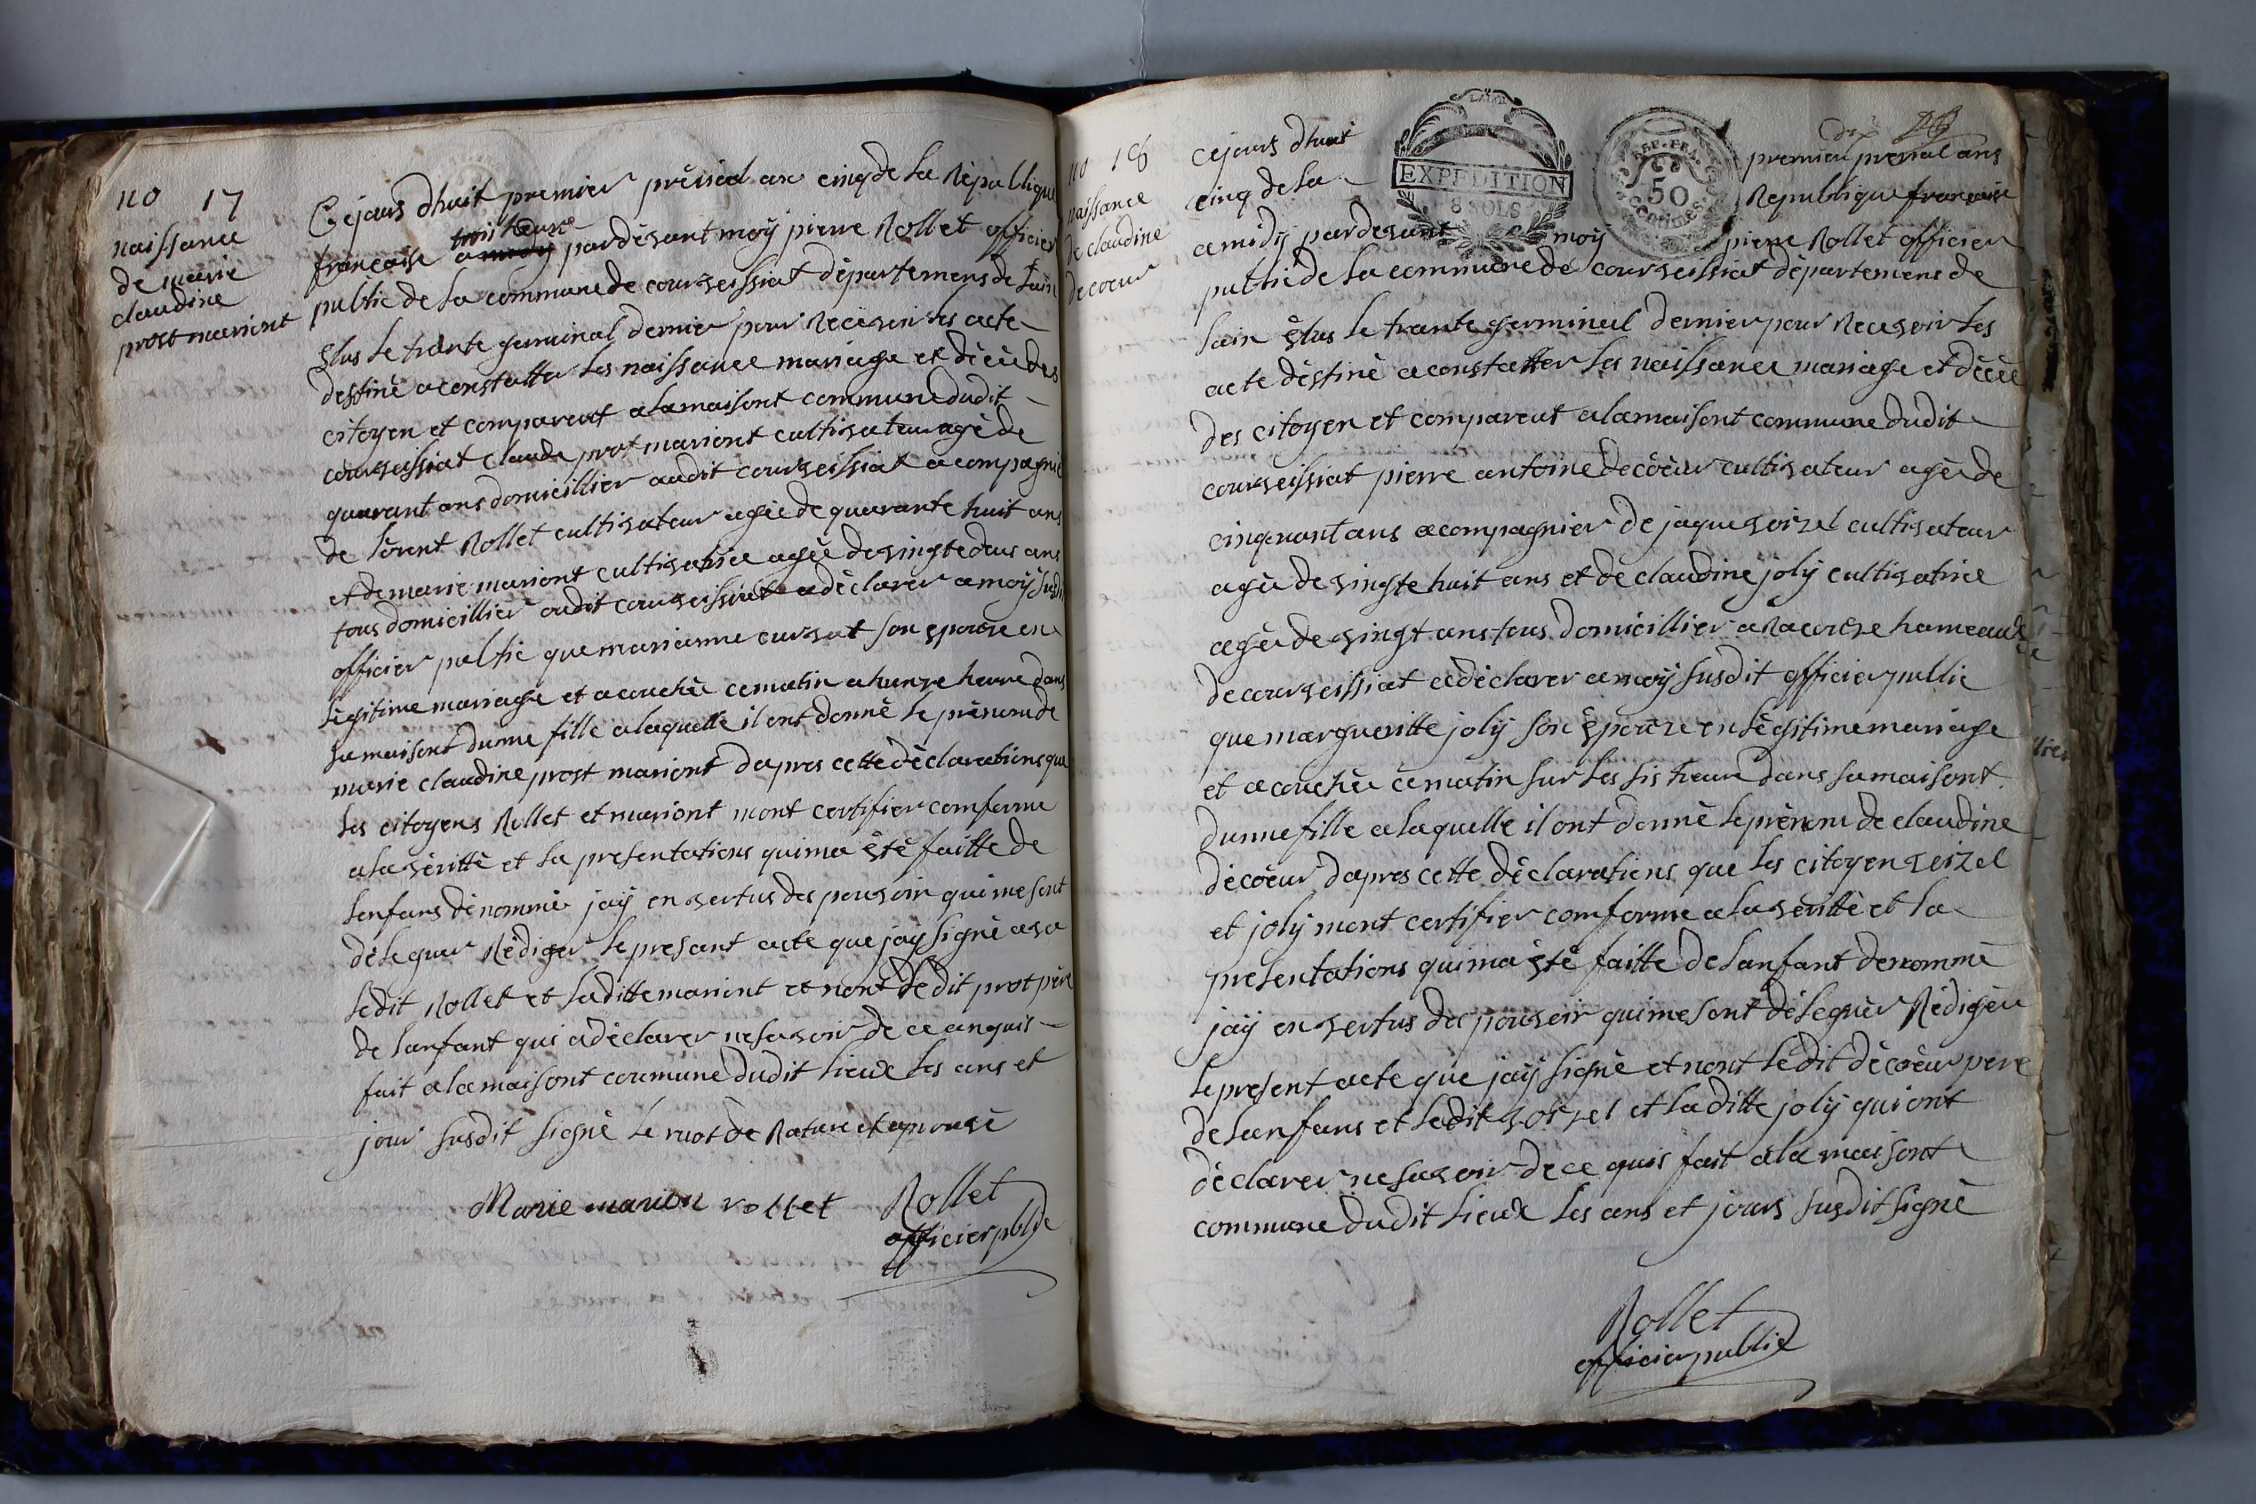 no 17
naissance
de marie
claudine
prost mariont
Cejours dhuit premier prérial an cinq de la Republique
française a midy trois heure pardèsant moÿ pierre Rollet officier
public de la commune de courseissiat dèpartemens de Lain
Elus le trante germinal dernier pour Recesoir les acte
destinè a constatter les naissance mariage et dècèe des
citoyen et comparent a lamaisont commune dudit
courseissiat claude prot mariont cultisateur agè de
quarant ans domicillier audit courseissiat acompagniè
de lorent Rollet cultisateur agèe de quarante huit ans
et de marie mariont cultisatrice agèe de singte deus ans
tous domicillier audit courseissiat a dèclarer a moÿ susdit
officier public que marianne cursat son epouze en
lègitime mariage et acouchèe cematin a hunze heure dans
sa maisont dunne fille a laquelle il ont donnè le prènom de
marie claudine prost mariont dapres cette dèclarations que
les citoyens Rollet et mariont mont certifier comforme
ala sèrittè et la presentations quima ètè faitte de
lenfans dènommè jaÿ en sertus des pousoir qui me sont
dèleguer Rèdiger le presant acte que jaÿ signè asa
ledit Rollet et laditte mariont et nont lèdit prot père
de lanfant qui a dèclarer ne sasoir de ce anquis
fait a lamaisont coumune dudit lieux les ans et
jour susdit signè le mot de Rature et aprousè
Marie marion rollet Rollet
officier public
no 18
naissance
de claudine
decoeur
dix
cejours dhuit premier prerial ans
cinq de la Republique française
amidÿ pardesant moÿ pierre Rollet officier
public de la commune de courseissiat dèpartemens de
lain èlus le trante germinal dernier pour Recesoir les
acte dèstinè a constatter les naissance mariage et dècèe
des citoyen et comparent a lamaisont commune dudit
courseissiat pierre antoine decoèur cultisateur agèe de
cinquant ans acompagnier de jaque soizel cultisateur
agèe de singte huit ans et de claudine jolÿ cultisatrice
agèe de singt ans tous domicillier a Racouze hameaux
de courseissiat a dèclarer a moÿ susdit officier public
que margueritte jolÿ son èpouze en lègitime mariage
et acouchèe cematin sur les sis heure dans sa maisont
dunne fille a laquelle il ont donnè le prènom de claudine
dècoèur dapres cette dèclarations que les citoyen soizel
et jolÿ mont certifier comforme a la sèrittè et la
presentations quima ètè faitte de lanfant denommè
jaÿ en sertus des pousoir qui me sont dèleguèr Rèdigèr
le present acte que jaÿ signè et nont lèdit dècoèur pere
de lanfans et ledit soizel et laditte jolÿ qui ont
dèclarer ne sasoir de ce quis fait a la maisont
commune dudit lieux les ans et jours susdit signè
Rollet
officier public
LA LOI
EXPEDITION
8 SOLS
REP. FRA.
50
centimes